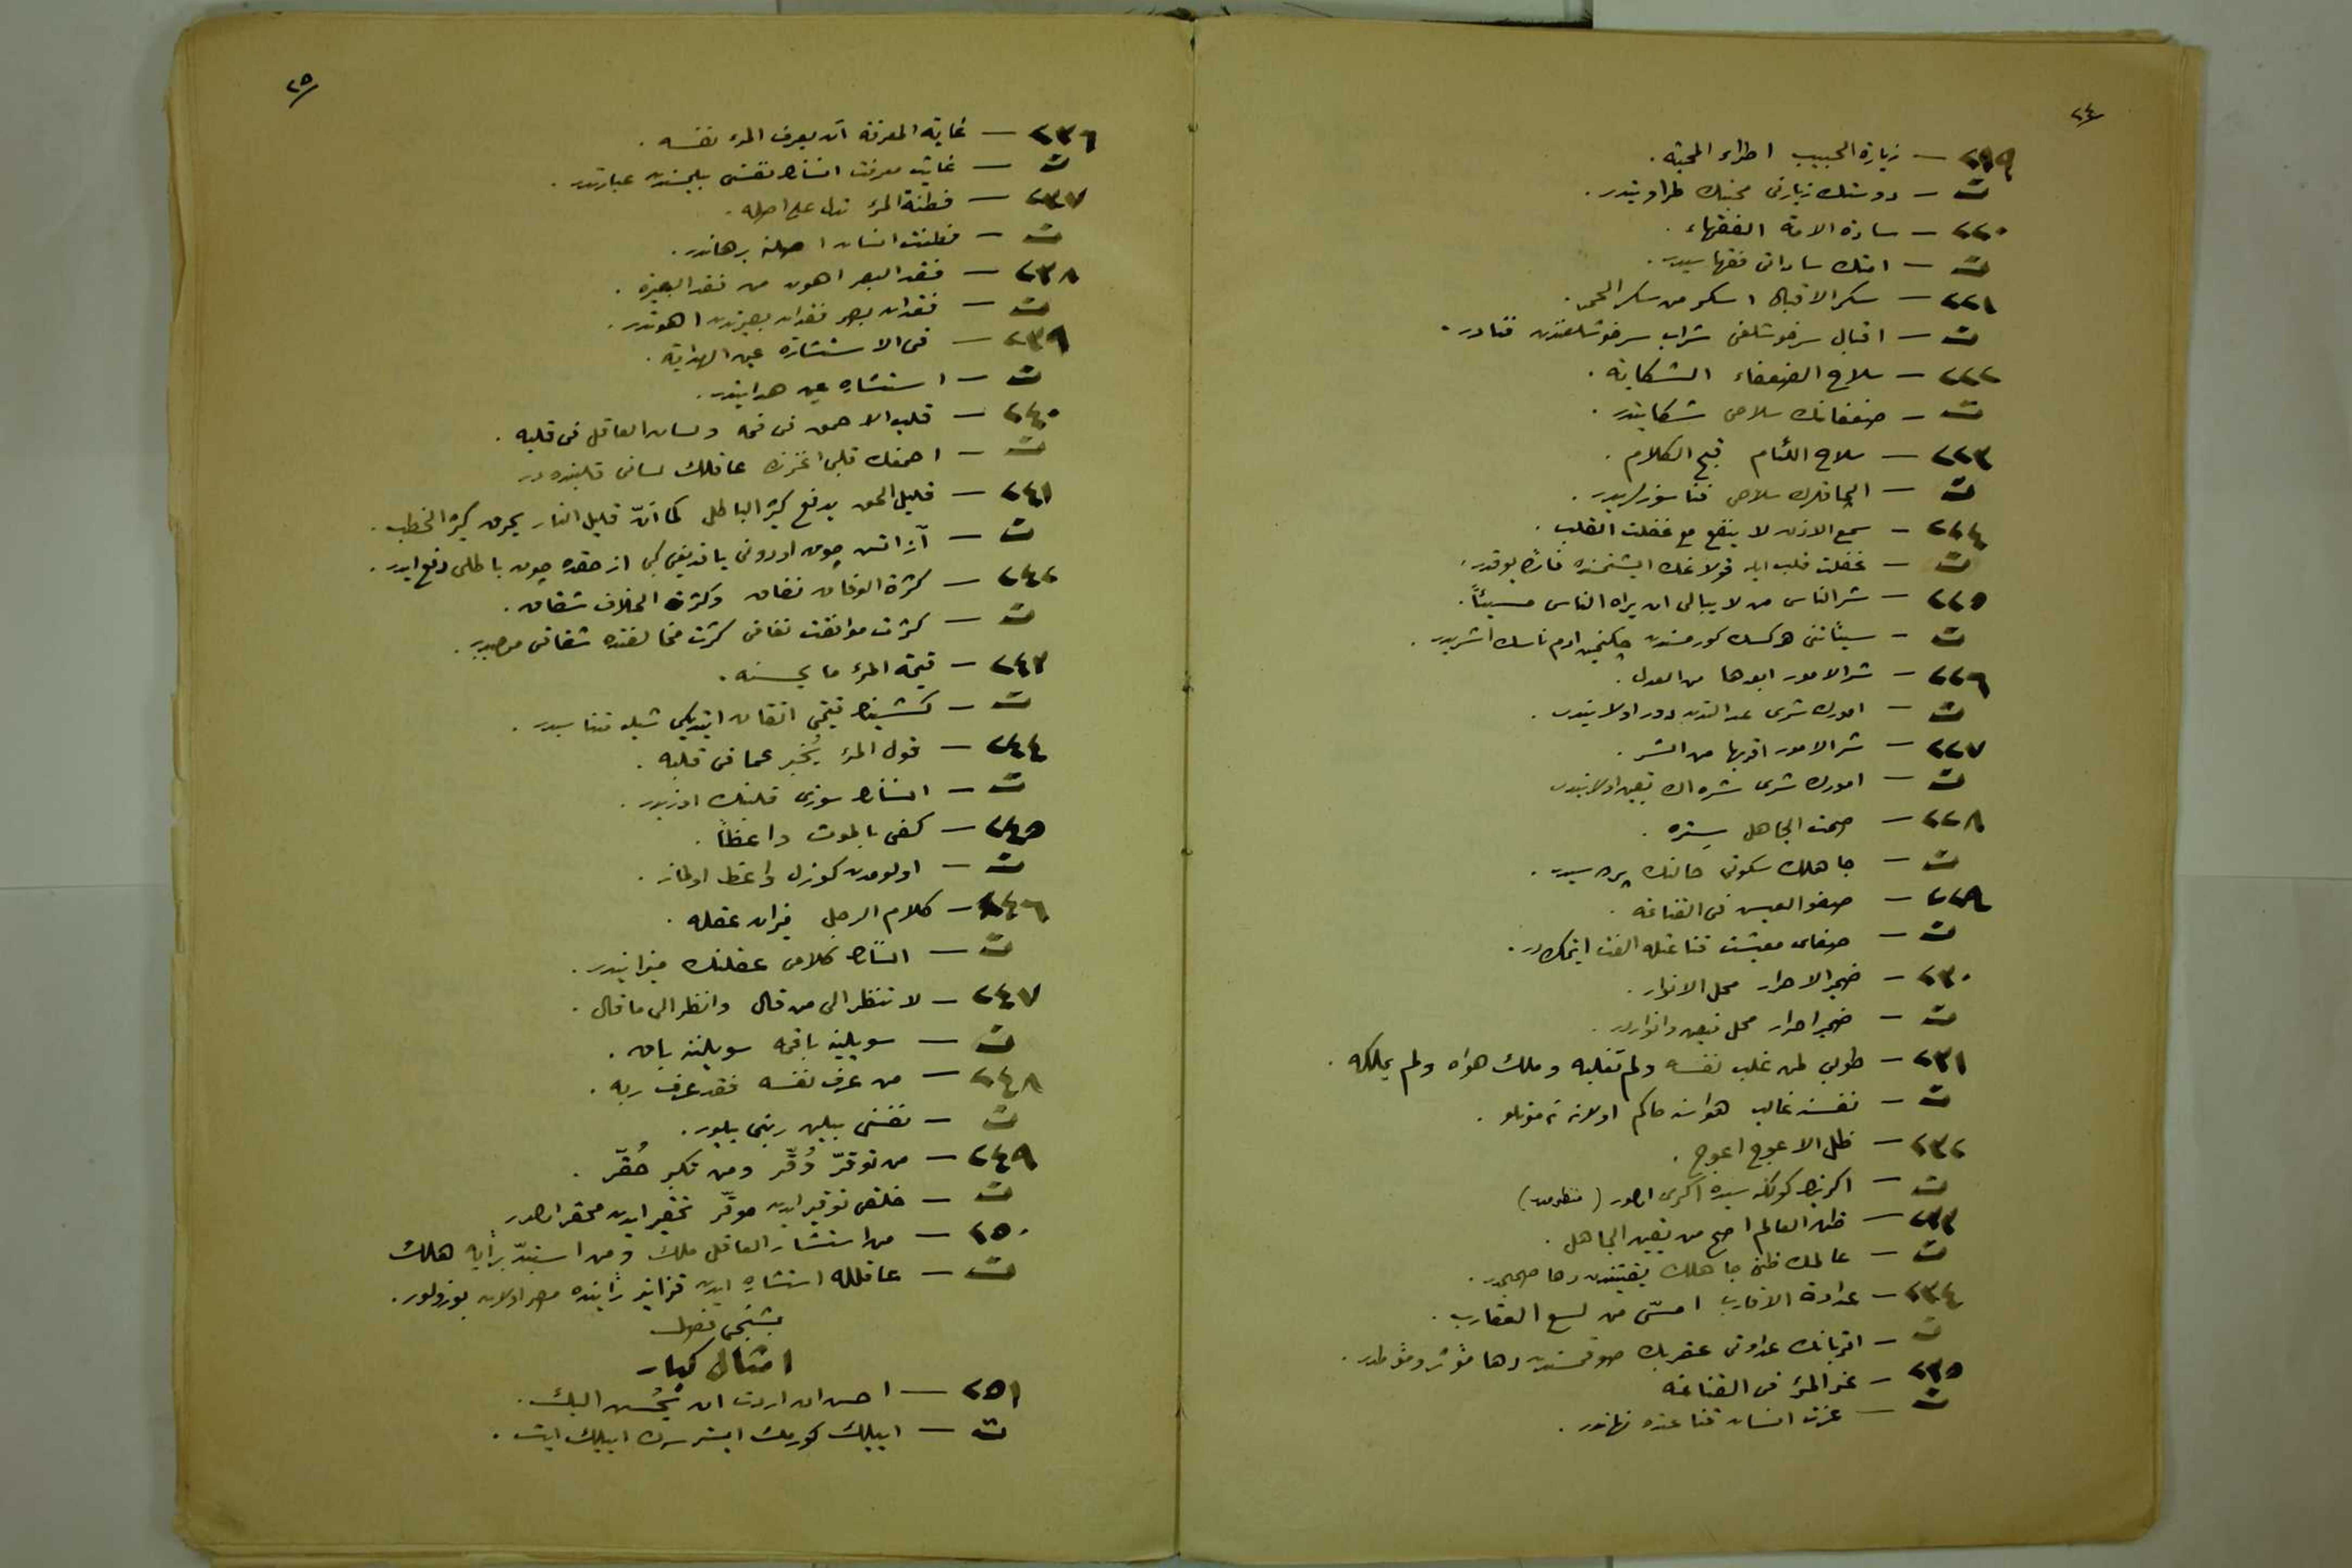 ٢٤
٢١٩ — زيارة الحبيب اطراء المحبة .
ت — دوستك زيارتی محبتك طراوتيدر .
٢٢٠ — سادة الامة الفقهاء .
ت — امتك ساداتی فقهاسيدر .
٢٢١ — سكر الاقبال اسكر من سكر الخمر .
ت — اقبال سرخوشلغی شراب سرخوشلغندن فنادر .
٢٢٢ — سلاح الضعفاء الشكاية .
ت — ضعفانك سلاحی شكايتدر .
٢٢٣ — سلاح اللئام قبح الكلام .
ت — الچاقلرك سلاحی فنا سوزلريدر .
٢٢٤ — سمع الاذن لا ينفع مع غفلت القلب .
ت — غفلت قلب ايله قولاغك ايشتمسنده فائده يوقدر .
٢٢٥ — شر الناس من لا يبالی ان يراه الناس مسيئاً .
ت — سيئاتنی هركسك كورمسندن چكنمين آدم ناسك اشريدر .
٢٢٦ — شر الامور ابعدها من العدل .
ت — امورك شری عدالتدن دور اولانيدر .
٢٢٧ — شر الامور اقربها من الشر .
ت — امورك شری شره اك يقين اولانيدر
٢٢٨ — صمت الجاهل ستره .
ت — جاهلك سكوتی حالنك پرده سيدر .
٢٢٩ — صفو العيش فی القناعة .
ت — صفای معيشت قناعتله الفت ايتمكدر .
٢٣٠ — ضمير الاحرار محل الانوار .
ت — ضمير احرار محل فيض وانواردر .
٢٣١ — طوبی لمن غلب نفسه ولم تغلبه وملك هواه ولم يملكه .
ت — نفسنه غالب هواسنه حاكم اولانه نه موتلو .
٢٣٢ — ظل الاعوج اعوج .
ت — اكرينك كولكه سيده اكری اولور (منظومدر)
٢٣٣ — ظن العالم اصح من يقين الجاهل .
ت — عالمك ظنی جاهلك يقينندن دها صحيحدر .
٢٣٤ — عداوة الاقارب امسّ من لسع العقارب .
ت — اقربانك عداوتی عقربك صوقمسندن دها مؤثر ومؤلمدر .
٢٣٥ — عز المرء فی القناعة
ت — عزت انسان قناعتده نهاندر .
٢٥
٢٣٦ — غاية المعرفة ان يعرف المرء نفسه .
ت — غايت معرفت انسانك نفسنی بيلمسندن عبارتدر .
٢٣٧ — فطنة المرء تدل علی اصله .
ت — فطنت انسان اصلنه برهاندر .
٢٣٨ — فقد البصر اهون من فقد البصيرة .
ت — فقدان بصر فقدان بصيرتدن اهوندر .
٢٣٩ — فی الاستشارة عين الهداية .
ت — استشاره عين هدايتدر .
٢٤٠ — قلب الاحمق فی فمه ولسان العاقل فی قلبه .
ت — احمقك قلبی اغزنده عاقلك لسانی قلبنده در
٢٤١ — قليل الحق يدفع كثير الباطل كما انّ قليل النار يحرق كثير الحطب .
ت — آز آتش چوق اودونی ياقديغی كبی از حقده چوق باطلی دفع ايدر .
٢٤٢ — كثرة الوفاق نفاق وكثرة الخلاف شقاق .
ت — كثرت موافقت نفاقی كثرت مخالفتده شقاقی موجبدر .
٢٤٣ — قيمة المرء ما يحسنه .
ت — كشينك قيمتی اتقان ايتديكی شيله متناسبدر .
٢٤٤ — قول المرء يُخبر عما فی قلبه .
ت — انسانك سوزی قلبنك اوزيدر .
٢٤٥ — كفی بالموت واعظاً .
ت — اولومدن كوزل واعظ اولماز .
٢٤٦ — كلام الرجل ميزان عقله .
ت — انسانك كلامی عقلنك ميزانيدر .
٢٤٧ — لا تنظر الی من قال وانظر الی ما قال .
ت — سويلينه باقمه سويلننه باق .
٢٤٨ — من عرف نفسه فقد عرف ربه .
ت — نفسنی بيلن ربنی بيلور .
٢٤٩ — من توقّر وُقّر ومن تكبر حُقّر .
ت — خلقی توقير ايدن موقّر تحقير ايدن محقر اولور
٢٥٠ — من استشار العاقل ملك ومن استبدّ برأيه هلك
ت — عاقلله استشاره ايدن قزانير رأينده مصر اولان بوزولور .
بشنجی فصل
امثال كبار
٢٥١ — احسن ان اردت ان يُحسن اليك .
ت — ايیلك كورمك ايسترسه ك ايیلك ايت .